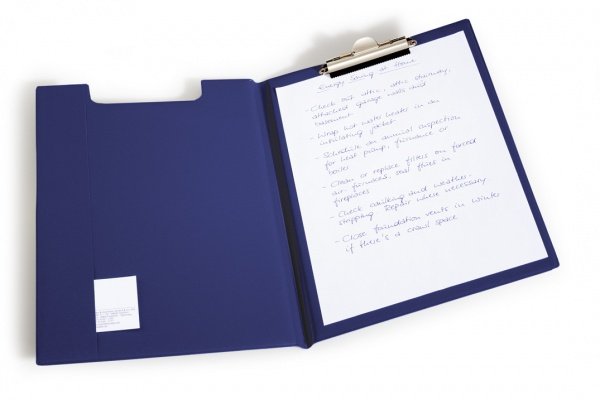 Energy Saving at Home
- Check out attic, attic stairway,
attached garage walls and
basement
- Wrap hot water heater in an
insulating jacket
- Schedule an annual inspection
for heat pump, furnance or
boiler
- Clean or replace filters on forced
air furnaces, seal flues in
fireplaces
- Check caulking and weather.
stripping. Repair where necessary
- Close foundation vents in winter
if there's a crawl space